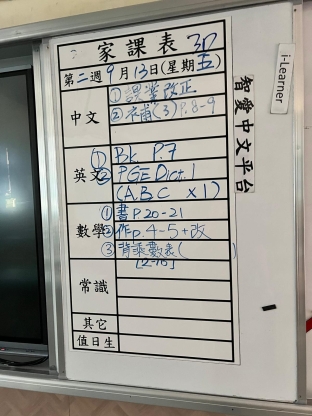 家課表 3D
第二週9月13日(星期五)
中文
① 課業改正
② 補(3) P.8-9
英文
① Bk. P.7
② PGE Dict. 1
(A,B,C ×1)
數學
① 書 P.20-21
② 作 p.4-5+改
③ 背乘數表( )
[2-10]
常識
其它
值日生
i-Learner
智愛中文平台